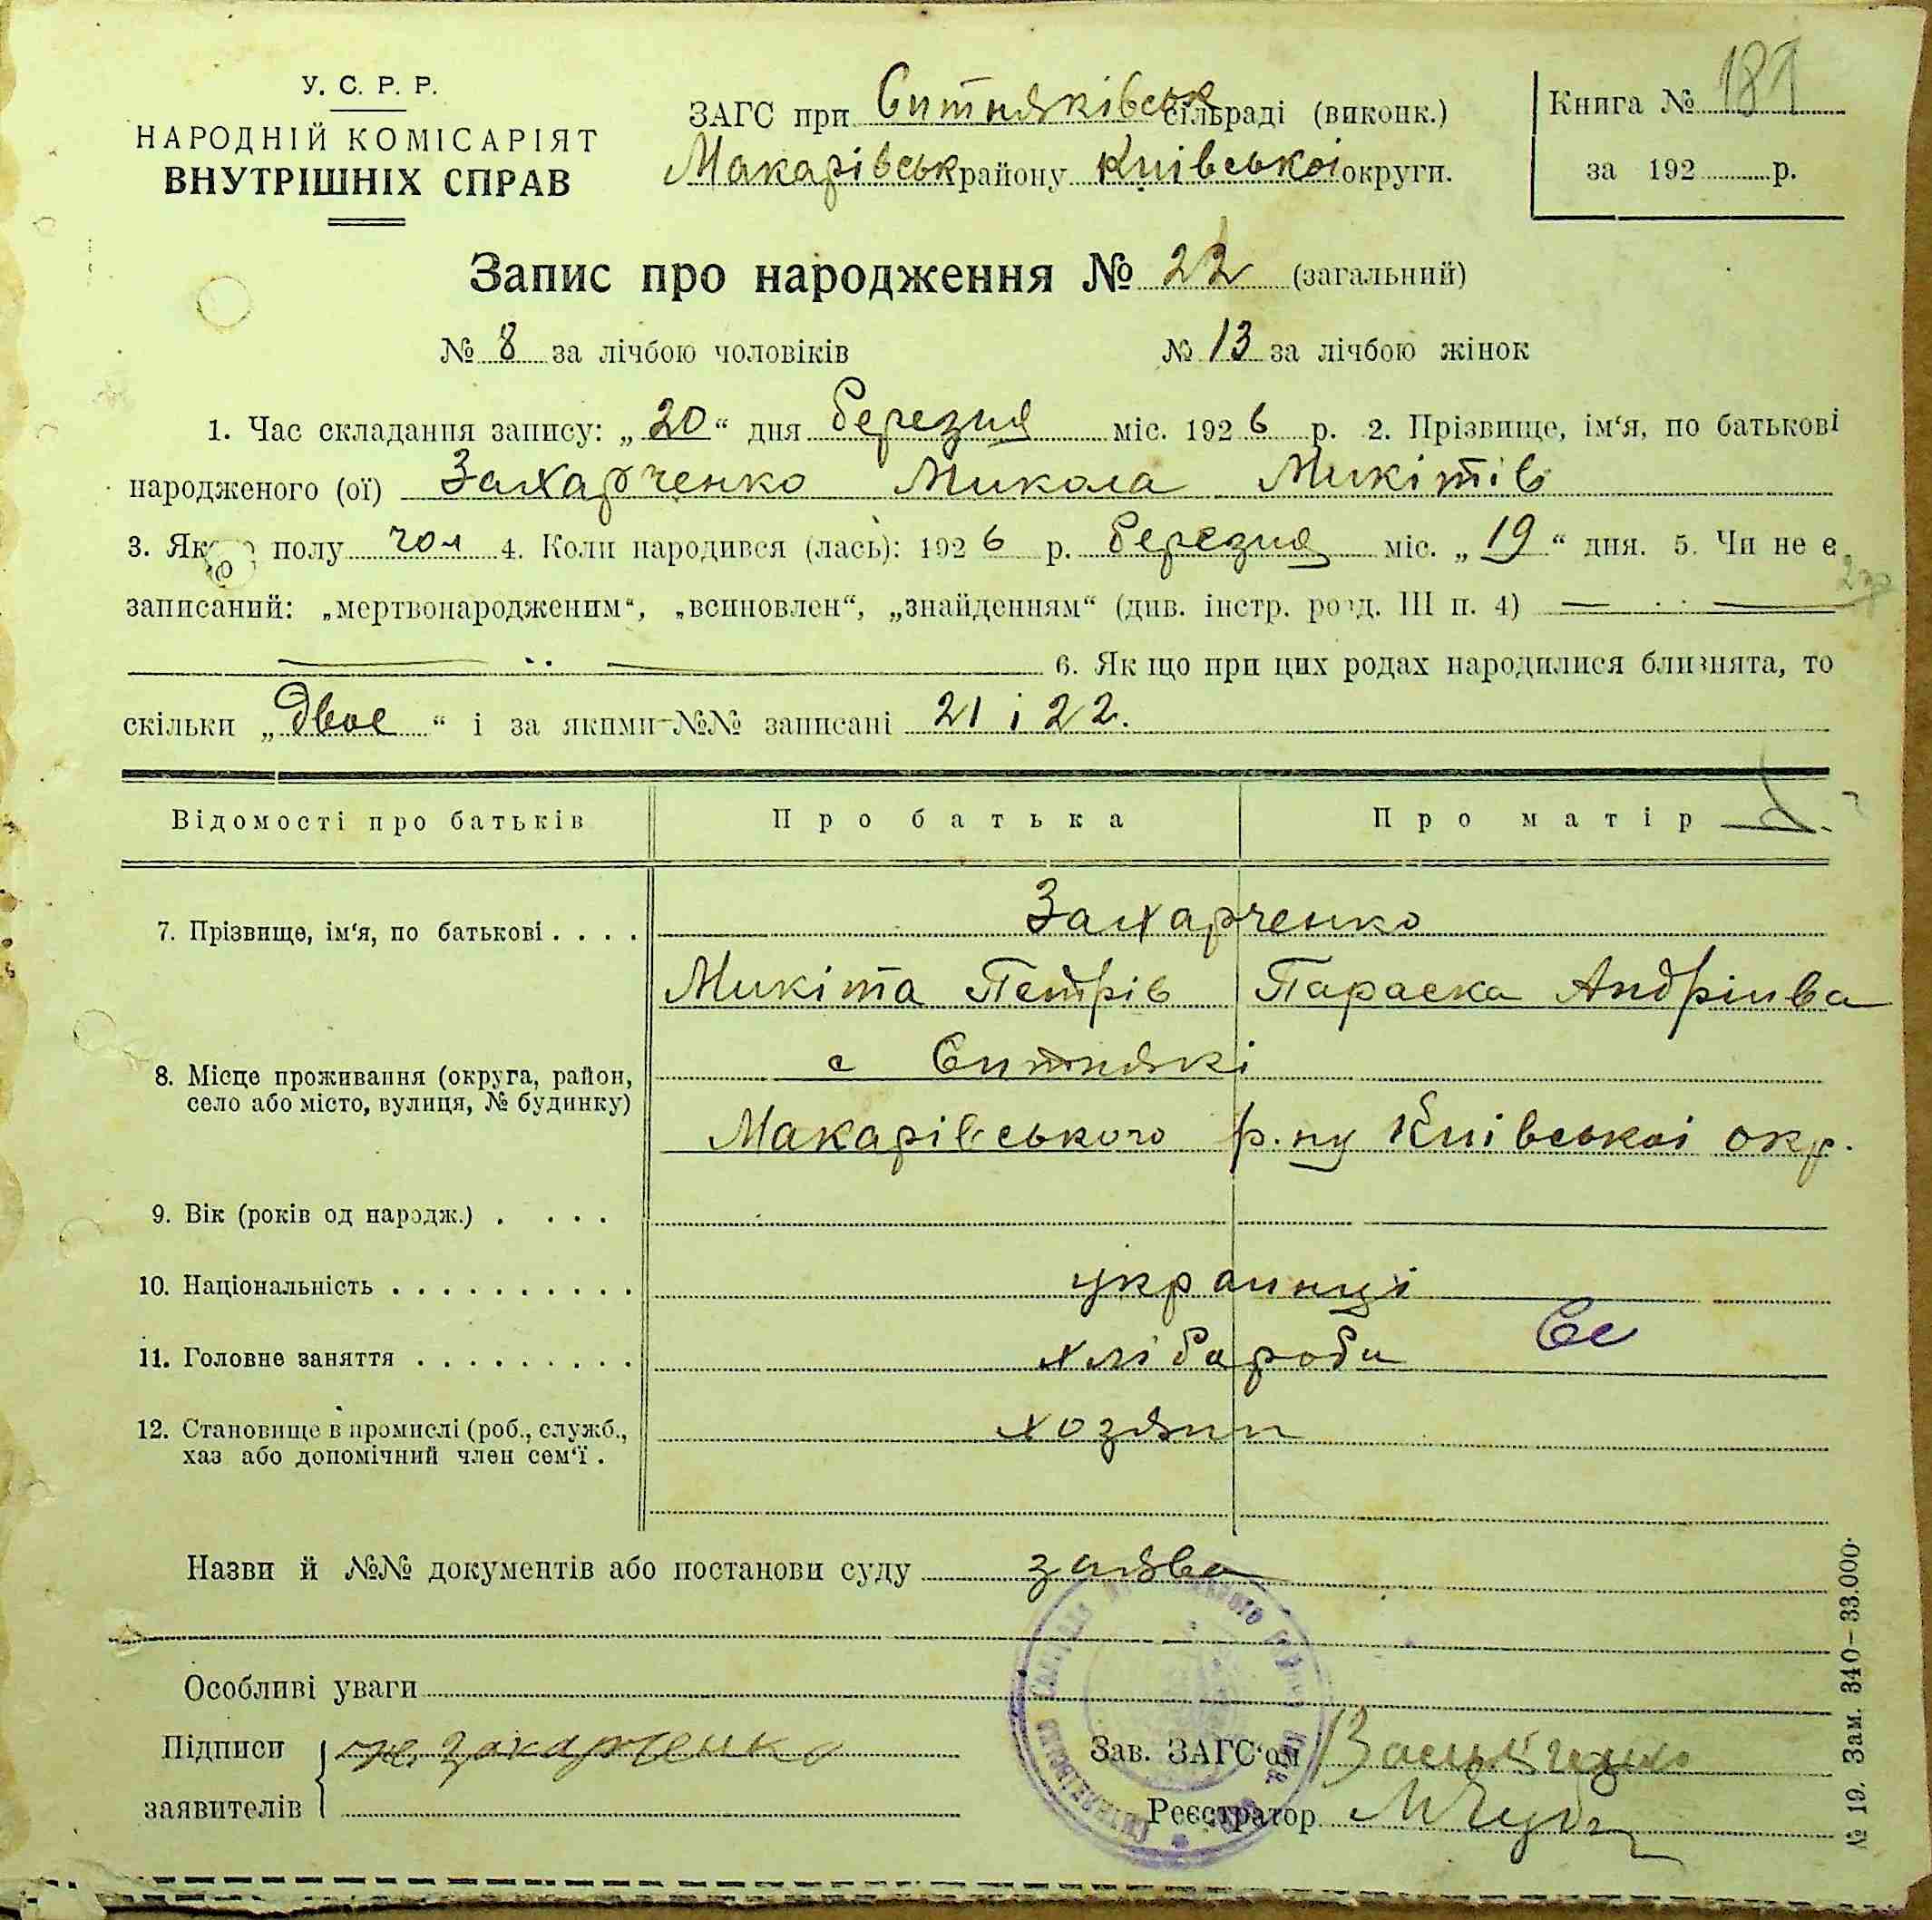 У. С. Р. Р.
НАРОДНІЙ КОМІСАРІЯТ
ВНУТРІШНІХ СПРАВ
ЗАГС при Ситняківськ сільраді (виконк.)
Макарівськ району Київськоі округи.
Книга № 181
за 192 р.
Запис про народження № 22 (загальний)
№ 8 за лічбою чоловіків № 13 за лічбою жінок
1. Час складання запису: „ 20 “ дня березня міс. 192 6 р. 2. Прізвище, ім‘я, по батькові
народженого (ої) Захарченко Микола Микітів
3. Як полу чол 4. Коли народився (лась): 192 6 р. березня міс. „ 19 “ дня. 5. Чи не є
записаний: „мертвонародженим“, „всиновлен“, „знайденням“ (див. інстр. розд. III п. 4)
6. Як що при цих родах народилися близнята, то
скільки „ двое “ і за якими №№ записані 21 і 22.
Відомості про батьків Про батька Про матір
7. Прізвище, ім‘я, по батькові . . . . Захарченко
Микіта Петрів Параска Андріива
8. Місце проживання (округа, район,
село або місто, вулиця, № будинку)
с Ситнякі
Макарівського р.ну Київськоі окр.
9. Вік (років од народж.) . . . .
10. Національність . . . . . . . . . . украинці
11. Головне заняття . . . . . . . . . хлібароби
12. Становище в промислі (роб., служб.,
хаз або допомічний член сем‘ї .
хозяин
Назви й №№ документів або постанови суду заява
Особливі уваги
Підписи
заявителів
захарченко
Зав. ЗАГС‘ом
Реєстратор
№ 19. Зам. 340—33.000.